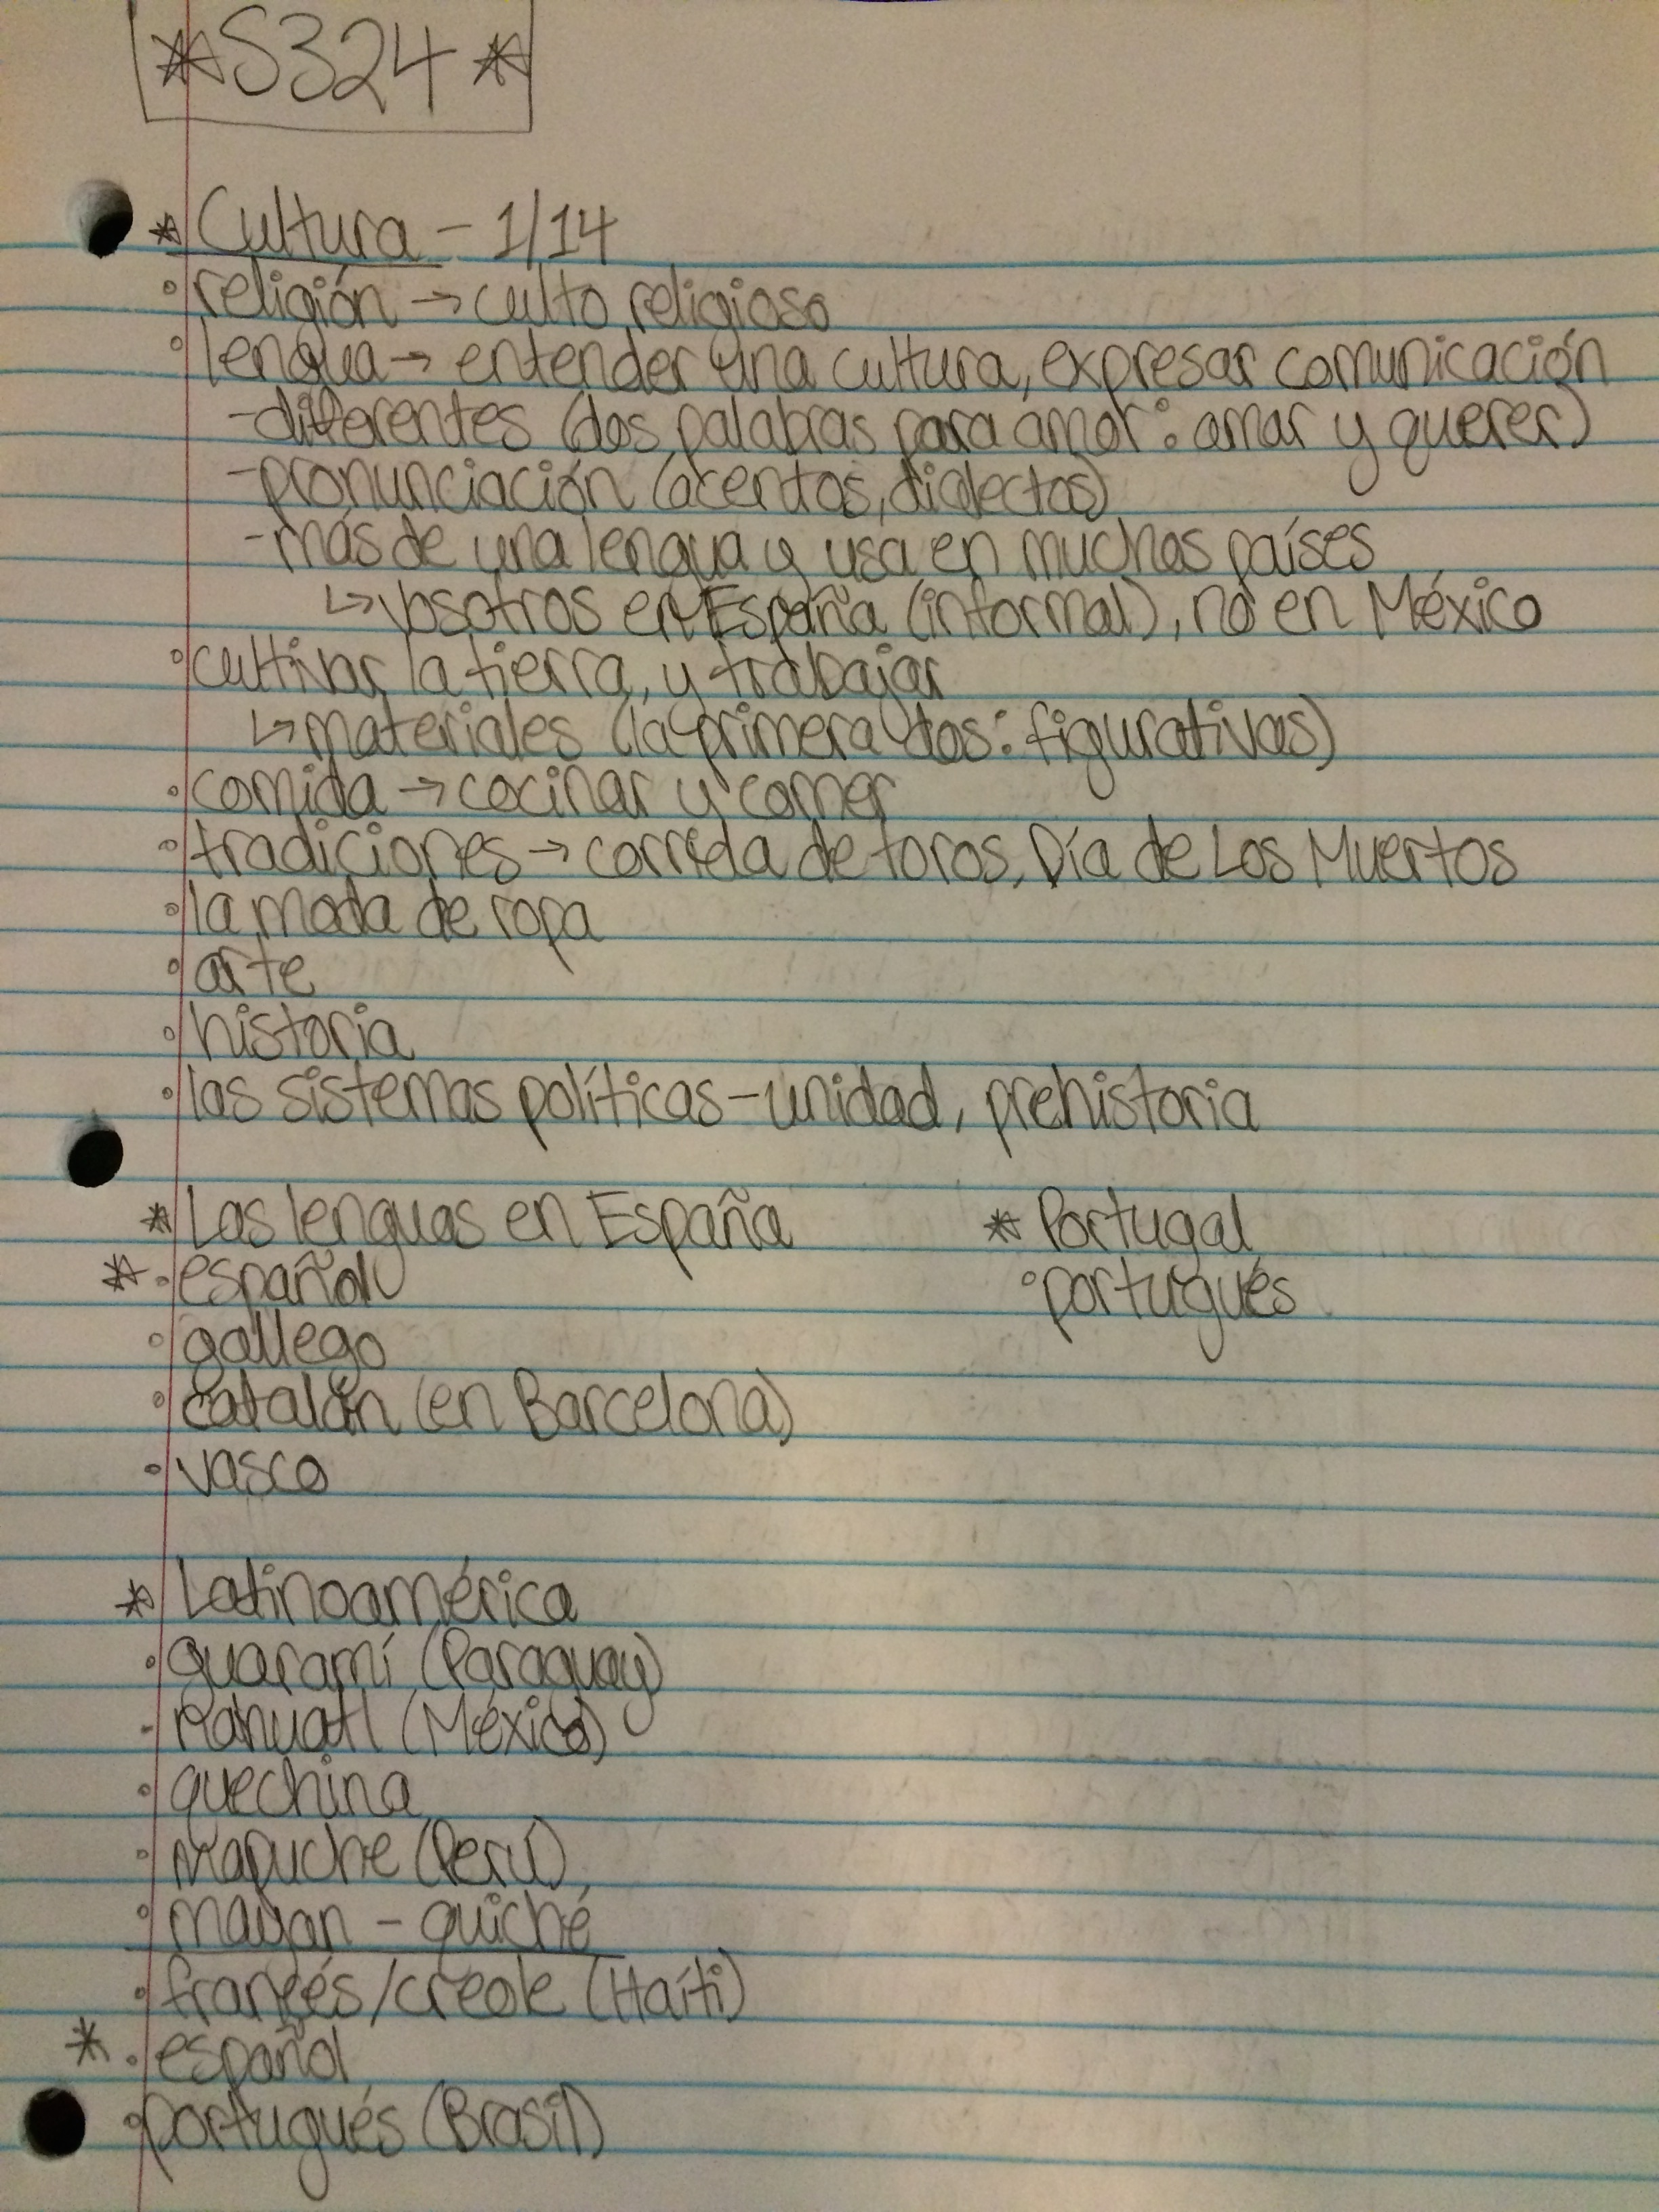 *S324*
* Cultura - 1/14
° religión → culto religioso
° lengua → entender una cultura, expresar comunicación
- diferentes (dos palabras para amor: amar y querer)
- pronunciación (acentos, dialectos)
- más de una lengua y usa en muchos países
↳ vosotros en España (informal), no en México
° cultivar la tierra, y trabajar
↳ materiales (la primera dos: figurativas)
° comida → cocinar y comer
° tradiciones → corrida de toros, Día de Los Muertos
° la moda de ropa
° arte
° historia
° las sistemas políticas - unidad, prehistoria
* Las lenguas en España
* ° español
° gallego
° catalán (en Barcelona)
° vasco
* Portugal
° portugués
* Latinoamérica
° guaramí (Paraguay)
- nahuatl (México)
° quechina
° mapuche (Perú)
° mayan - quiché
° francés/creole (Haíti)
* ° español
° portugués (Brasil)